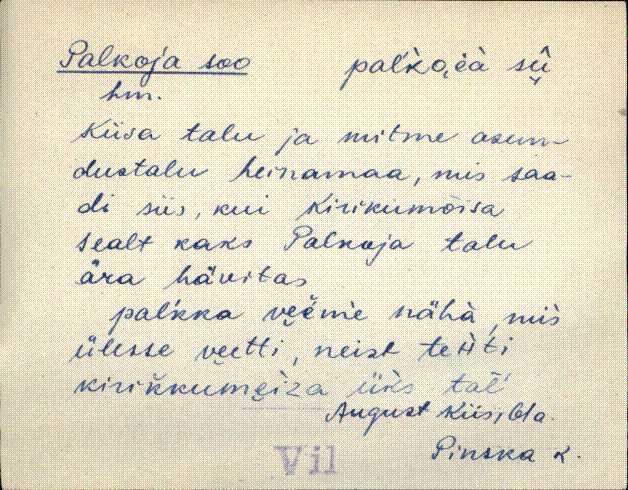 Palkoja soo pal'ko̬i̯à sū
hm.
Kiisa talu ja mitme asun-
dustalu heinamaa, mis saa-
di siis, kui Kirikumõisa
sealt kaks Palkoja talu
ära hävitas
pal'kka nähà, mis
ülesse veetti, neist tehti
üks tal'
August Kiis,
Pinska k.
Vil